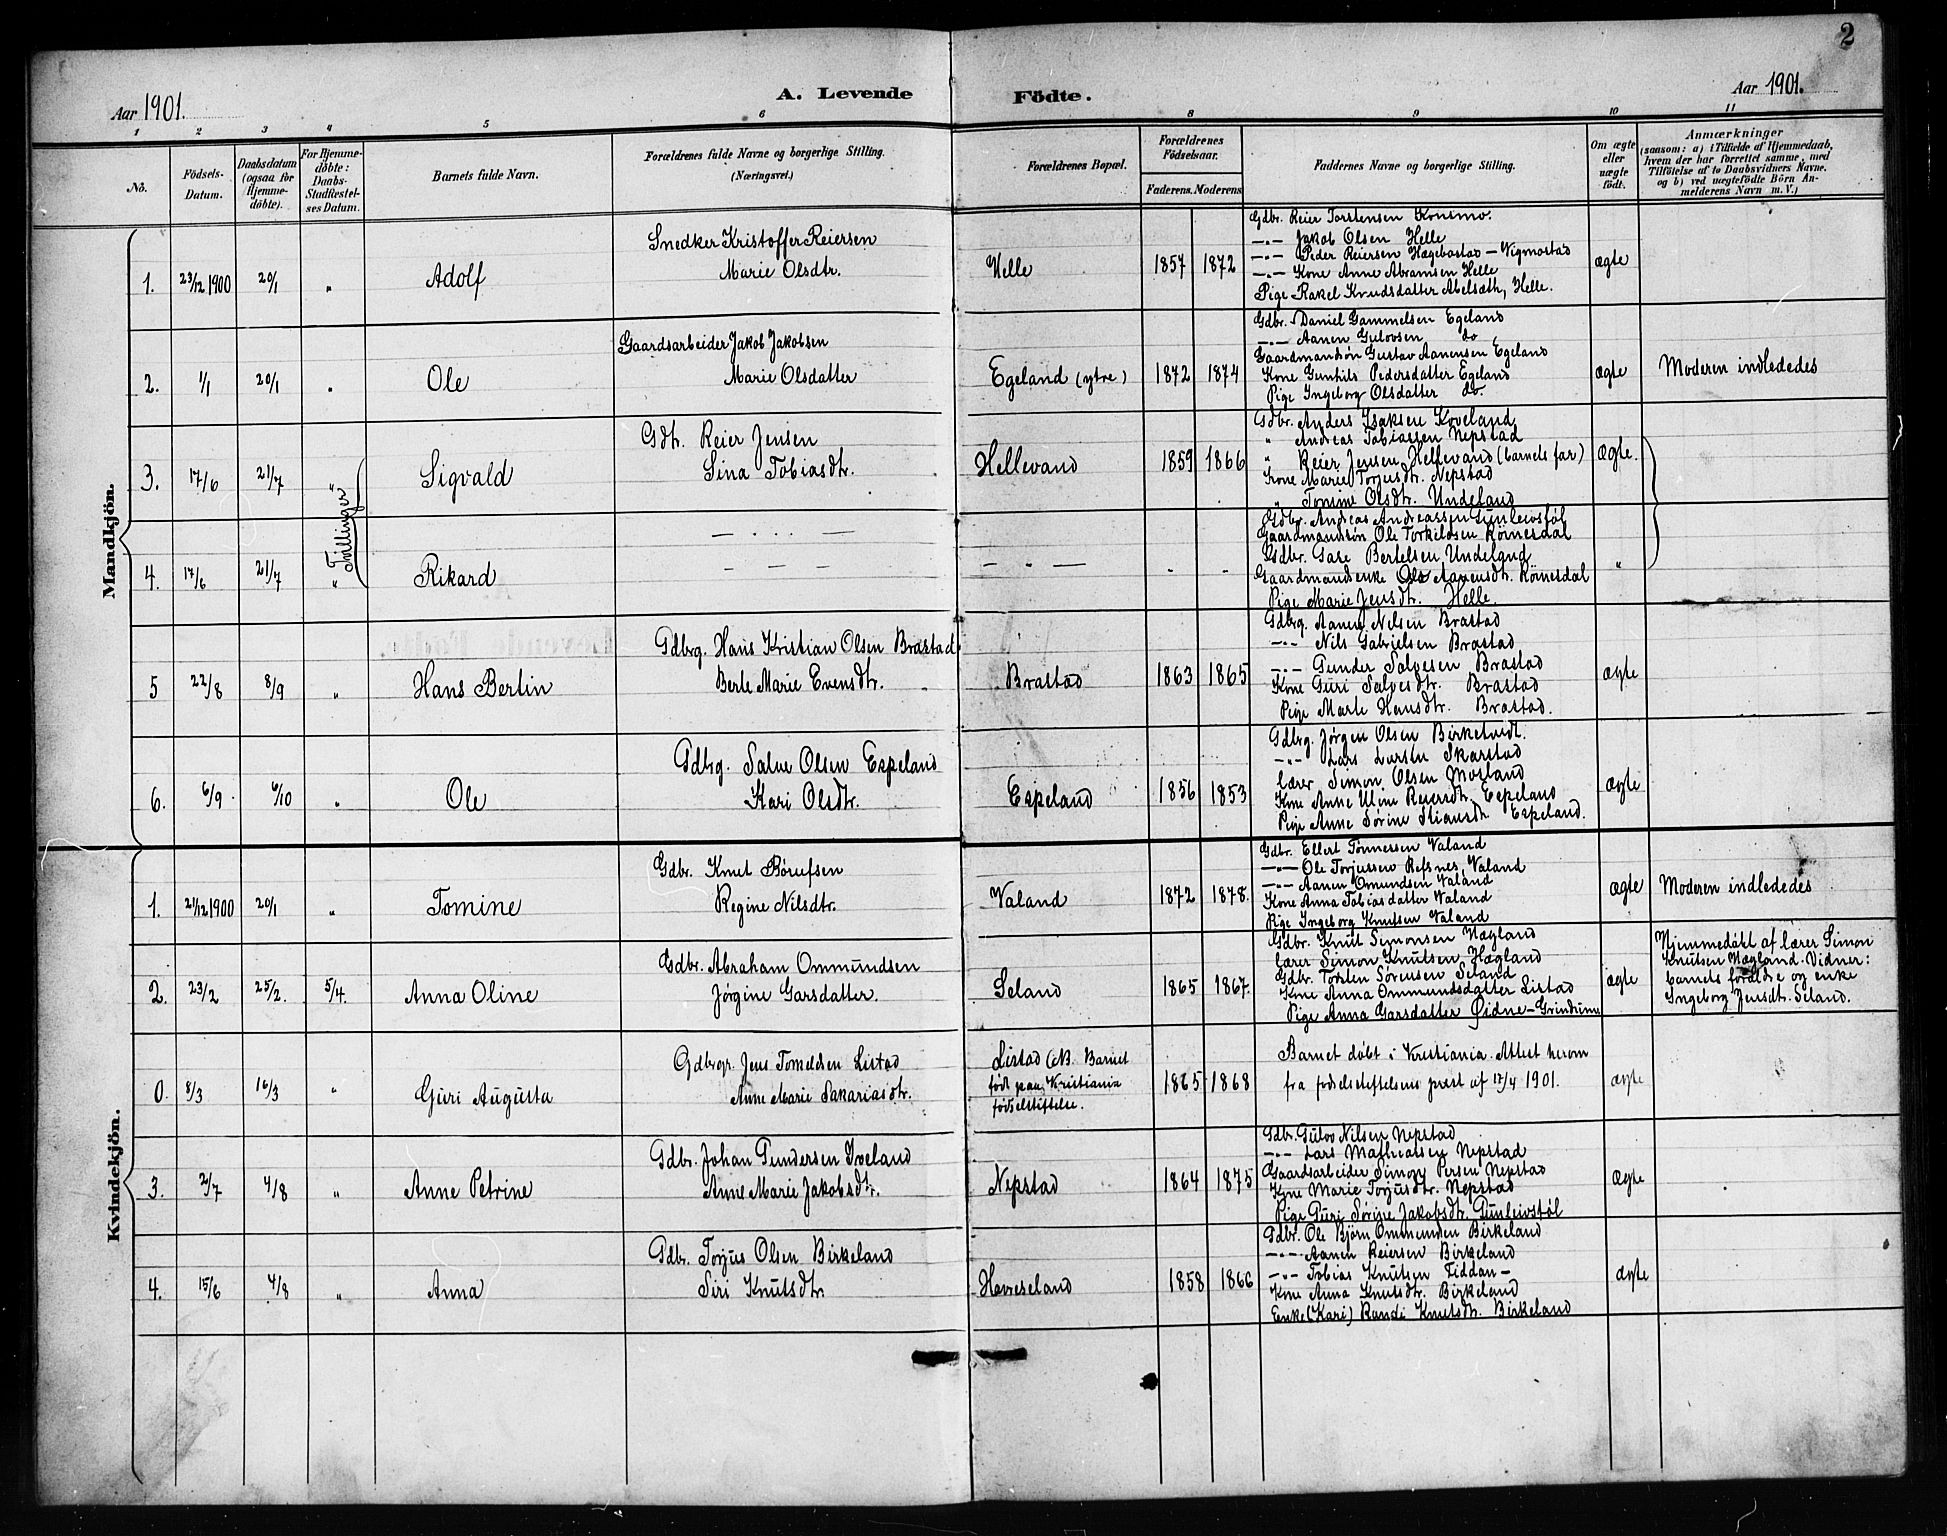 2
Aar 1901.
A. Levende
Födte.
Aar 1901.
1 2 3 4 5 6 8 9 10 11
No.
Födsels-Datum.
Daabsdatum (ogsaa for Hjemme-döbte).
For Hjemme-döbte: Daabs-Stadfæstel-ses Datum.
Barnets fulde Navn.
Forældrenes fulde Navne og borgerlige Stilling.
(Næringsvei.)
Forældrenes Bopæl.
Forældrenes Födselsaar.
Faderens. Moderens
Faddernes Navne og borgerlige Stilling.
Om ægte eller uægte födt.
Anmærkninger
(saasom: a) i Tilfælde af Hjemmedaab,
hvem der har forrettet samme, med
Tilföielse af to Daabsvidners Navne.
og b) ved uægtefödte Börn An-
melderens Navn m. V.)
Mandkjön.
1. 23/12 1900 20/1 " Adolf
Snedker Kristoffer Reiersen
Marie Olsdtr.
Helle 1857 1872
Gdbr. Reier Torstensen Konsmo.
—"— Jakob Olsen Helle
—"— Peder Reiersen Hægebostad - Vigmostad
—"— Kone Anne Abramsen Helle
Pige Rakel Knudsdatter Abelsæth, Helle.
ægte
2. 1/1 20/1 " Ole
Gaardsarbeider Jakob Jakobsen
Marie Olsdatter
Egeland (ytre) 1872 1874
Gdbr. Daniel Gammelsen Egeland
—"— Aanen Gulovsen do
Gaardmandsön Gustav Aanensen Egeland
Kone Gunhild Pedersdatter Egeland
Pige Ingeborg Olsdatter do.
ægte Moderen indlededes
3. 17/6 21/7 " Sigvald
Tvillinger
Gdb. Reier Jensen
Sina Tobiasdtr.
Hellevand 1859 1866
Gdbr. Anders Isaksen Koveland
" Andreas Tobiassen Nepstad
" Reier Jensen Hellevand (barnets far)
Kone Marie Torjusdtr. Nepstad
" Tomine Olsdtr. Undeland
ægte.
4. 17/6 21/7 " Rikard
Gdbr. Andreas Andreassen Gunleivstöl
Gaardmandsön Ole Torkildsen Römesdal
Gdbr. Gare Bertelsen Undeland
Gaardmandsenke Aanensdtr. Römesdal
Pige Marie Jensdtr. Helle.
"
5 22/8 8/9 " Hans Bertin
Gdbrg. Hans Kristian Olsen Brastad
Berte Marie Evensdtr.
Brastad 1863 1865
Gdbrg. Aanen Nilsen Brastad
—"— Nils Gabrielsen Brastad
—"— Gunder Salvesen Brastad
Kone Guri Salvesdtr. Brastad
Pige Marte Hansdtr. Brastad.
ægte
6. 6/9 6/10 " Ole
Gdbrg. Salve Olsen Espeland
Kari Olsdtr.
Espeland 1856 1853
Gdbrg. Jørgen Olsen Birketvedt.
—"— Lars Larsen Skarstad
lærer Simon Olsen Mosland
Kone Anne Reiersdtr. Espeland
Pige Anne Sörine Stiansdtr Espeland.
ægte
Kvindekjön.
1. 21/12 1900 20/1 " Tomine
Gdbr. Knut Börufsen
Regine Nilsdtr.
Valand 1872 1878.
Gdbr. Ellert Tönnessen Valand
—"— Ole Torjussen Refsnes, Valand
—"— Aanen Omundsen Valand
Kone Anna Tobiasdatter Valand
Pige Ingeborg Knutsen Valand
ægte Moderen indlededes
2. 23/2 25/2. 5/4. Anna Oline
Gdbr. Abraham Ommundsen
Jørgine Garsdatter.
Seland 1865 1867.
Gdbr. Knut Simonsen Hægland
lærer Simon Knutsen Hægland
Gdbr. Torsten Sörensen Seland
Kone Anna Ommundsdatter Listad
Pige Anna Garsdatter Øidne - Grindum
ægte
Hjemmedøbt af lærer Simon
Knutsen Hægland. Vidner:
barnets forældre og enke
Ingeborg Jensdt. Seland.
0. 8/3 16/3 " Guri Augusta
Gdbrgr. Jens Tomeldsen Listad
Anne Marie Sakariasdtr.
Listad (NB. Barnet
født paa Kristiania
fødselstiftelse.
1865 1868
Barnet døbt i Kristiania. Attest herom
fra fødselstiftelsens prest af 17/4 1901.
ægte
3. 2/7 4/8 " Anne Petrine
Gdbr. Johan Gundersen Iveland
Anne Marie Jakobsdtr.
Nepstad 1864 1875
Gdbr. Gulov Nilsen Nepstad
—"— Lars Mathiassen Nepstad
Gaardsarbeider Simon Persen Nepstad
Kone Marie Torjusdtr. Nepstad
Pige Guri Sörine Jakobsdtr. Gunleivstöl
ægte
4. 15/6 4/8 " Anna
Gdbr. Torjus Olsen Birkeland
Siri Knutsdtr.
Haveseland 1858 1866
Gdbr. Ole Björn Ommunden Birkeland
—"— Aanen Reiersen Birkeland
—"— Tobias Knutsen Fiddan —
Kone Anna Knutsdtr. Birkeland
Enke (Kari) Randi Knutsdtr. Birkeland
ægte